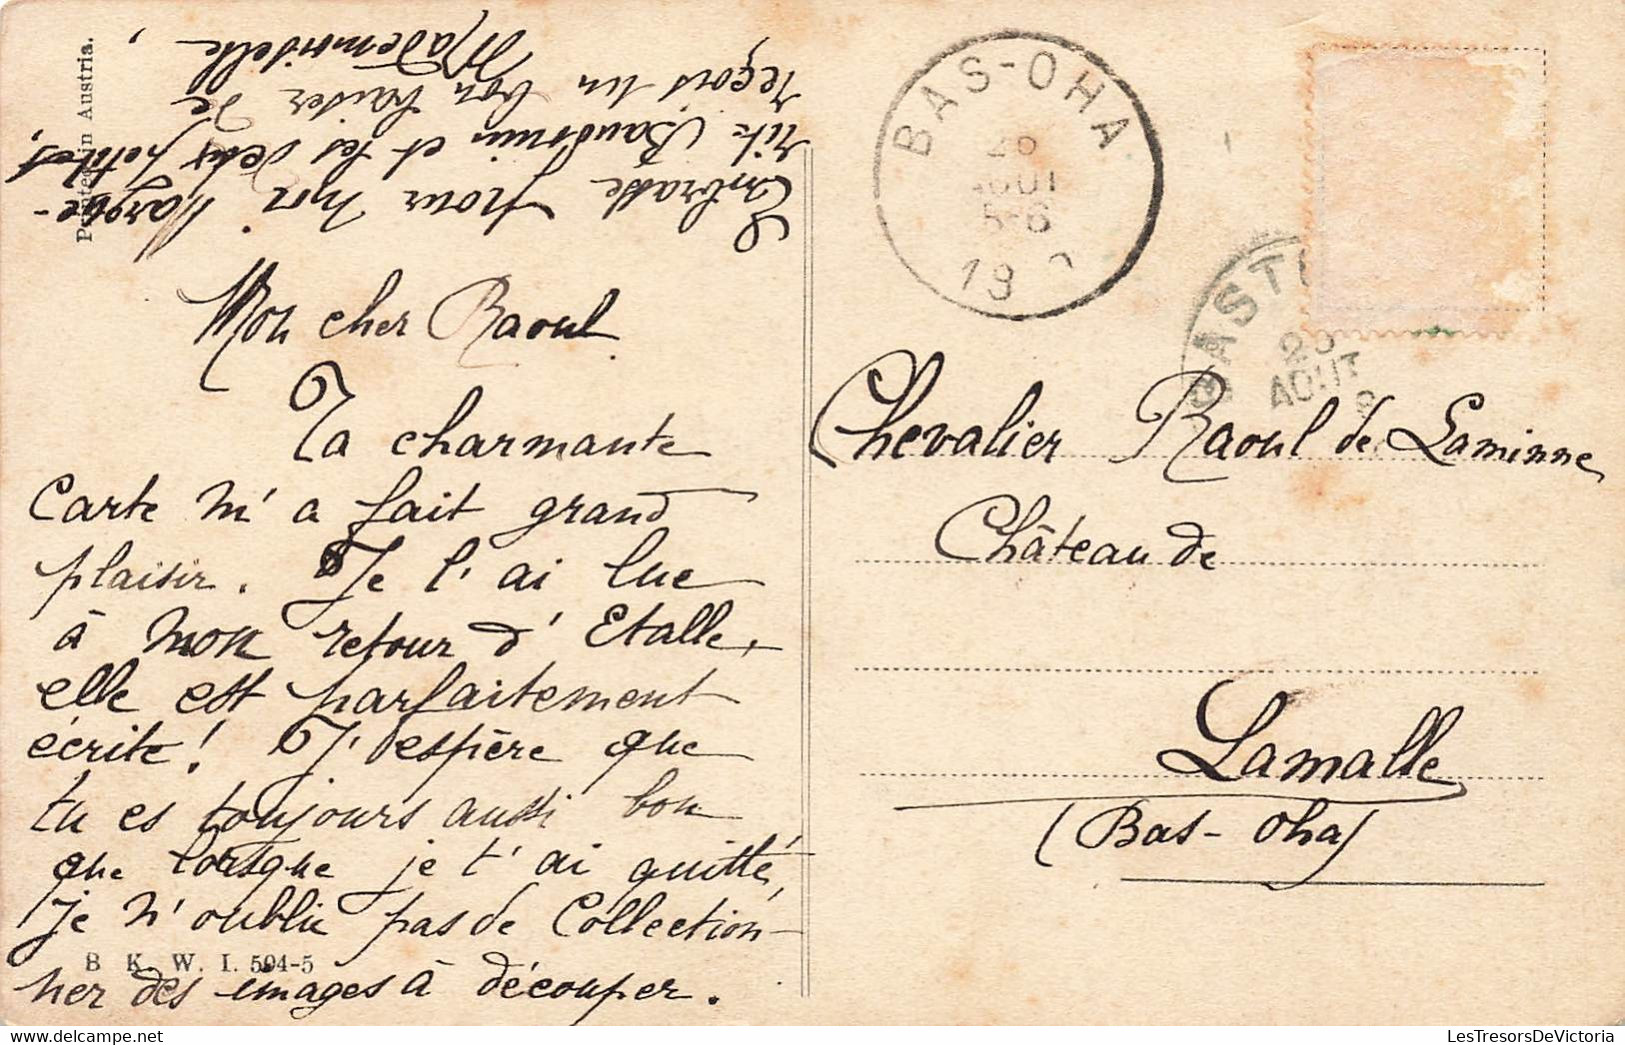 Mon cher Raoul
Ta charmante
Carte m'a fait grand
plaisir. Je l'ai lue
à mon retour d'Etalle,
elle est parfaitement
écrite! J'espère que
tu es toujours aussi bon
que lorsque je t'ai quitté,
je n'oublie pas de Collection-
ner des images à découper.
Embrasse pour moi Margue-
rite Baudouin et les deux petites,
reçois un bon baiser de
Mademoiselle,
Printed in Austria.
B. K. W. I. 594-5
BAS-OHA
AOUT
5-6
19
BAST
AOUT
Chevalier Raoul de Laminne
Château de
Lamalle
(Bas-Oha)
LesTresorsDeVictoria.com